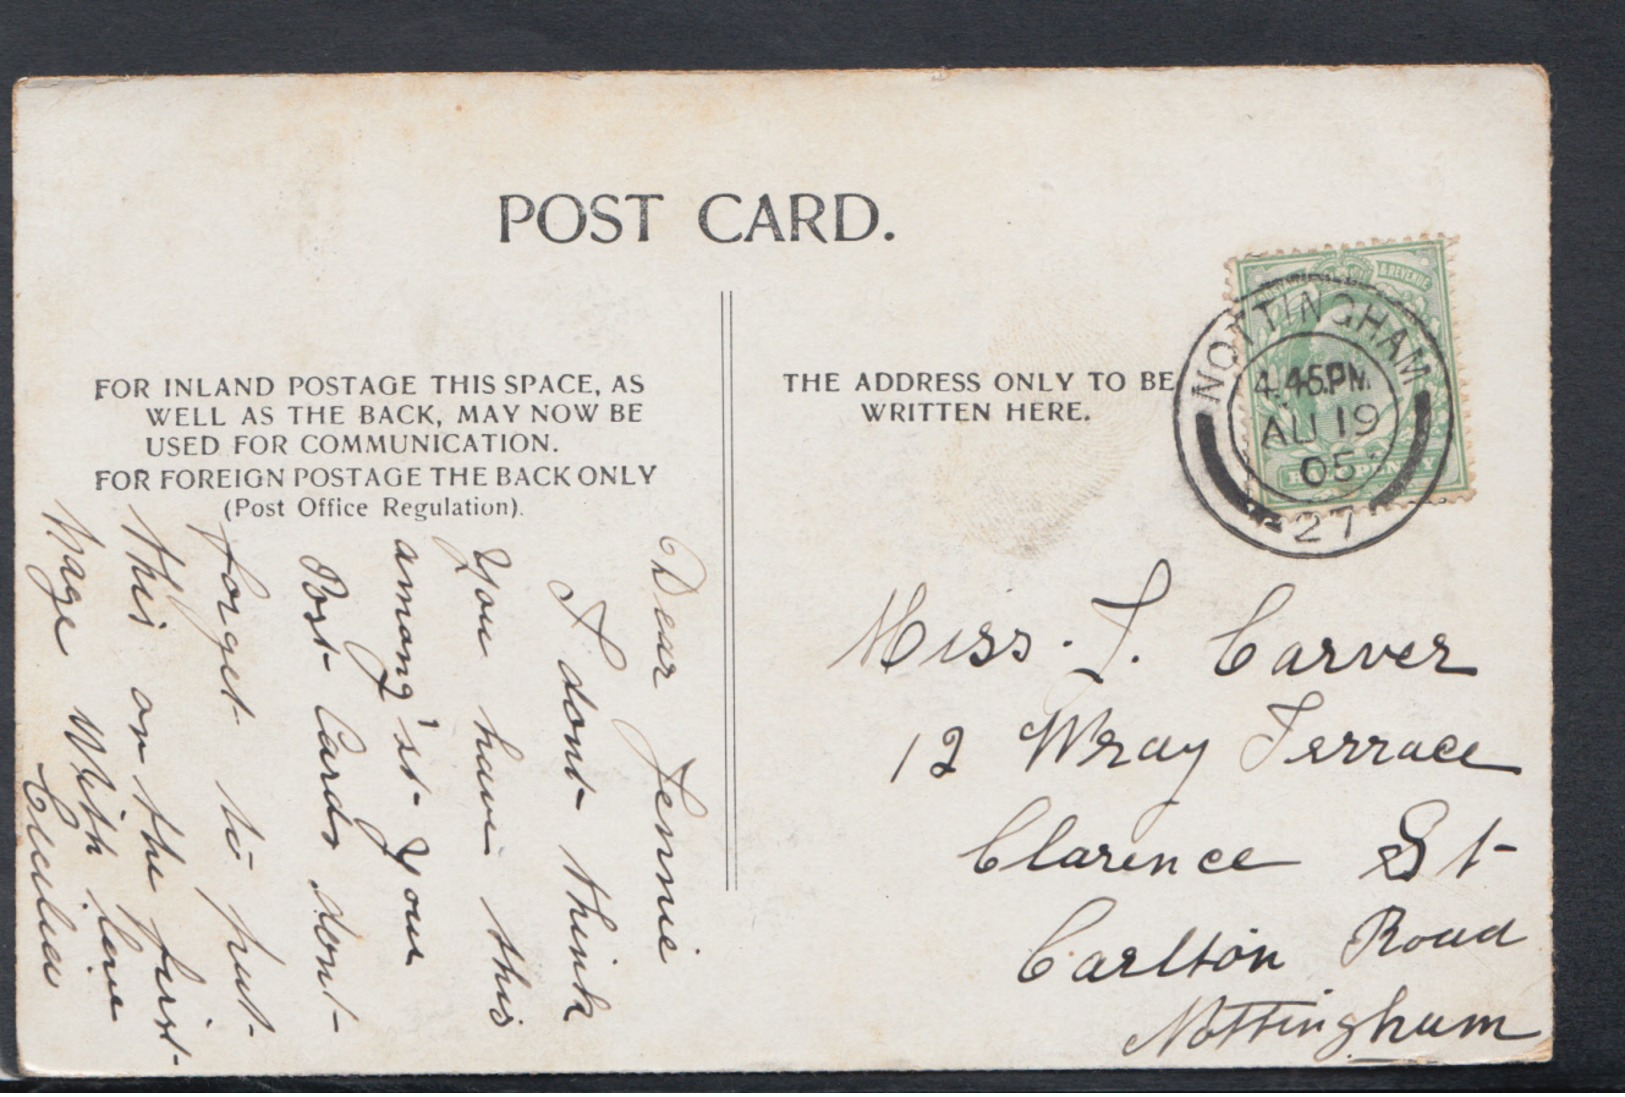 POST CARD.
FOR INLAND POSTAGE THIS SPACE, AS
WELL AS THE BACK, MAY NOW BE
USED FOR COMMUNICATION.
FOR FOREIGN POSTAGE THE BACK ONLY
(Post Office Regulation).
THE ADDRESS ONLY TO BE
WRITTEN HERE.
& REVENUE
HALFPENNY
NOTTINGHAM
4.45PM
AU 19
05
27
Dear Jennie
I dont think
you have this
among'st your
Post Cards dont
forget to put
this on the first
page With love
Cecilia
Miss. J. Carver
12 Wray Terrace
Clarence St
Carlton Road
Nottingham